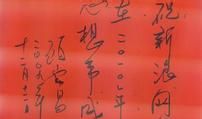 祝新浪网
在二〇一〇年
心想事成
顾云昌
二〇〇九年
十二月十二日